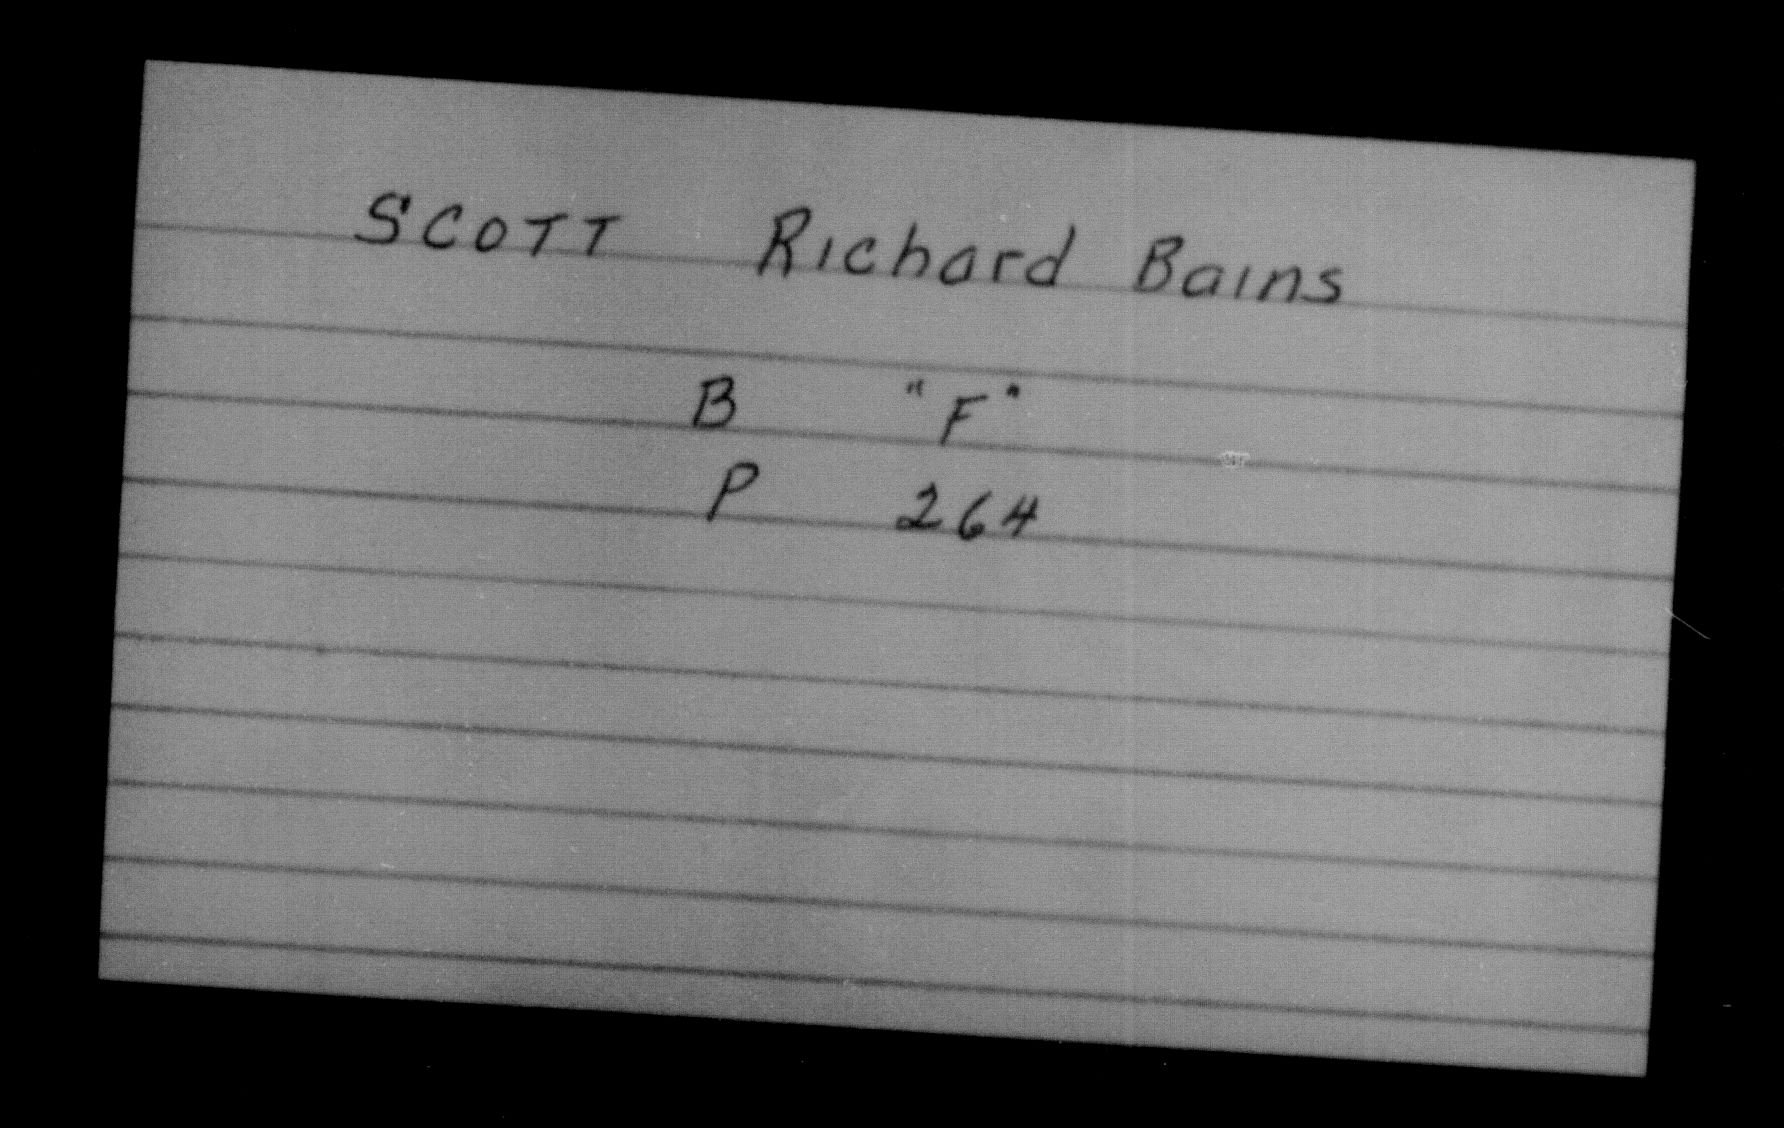 SCOTT Richard Bains
B "F"
P 264